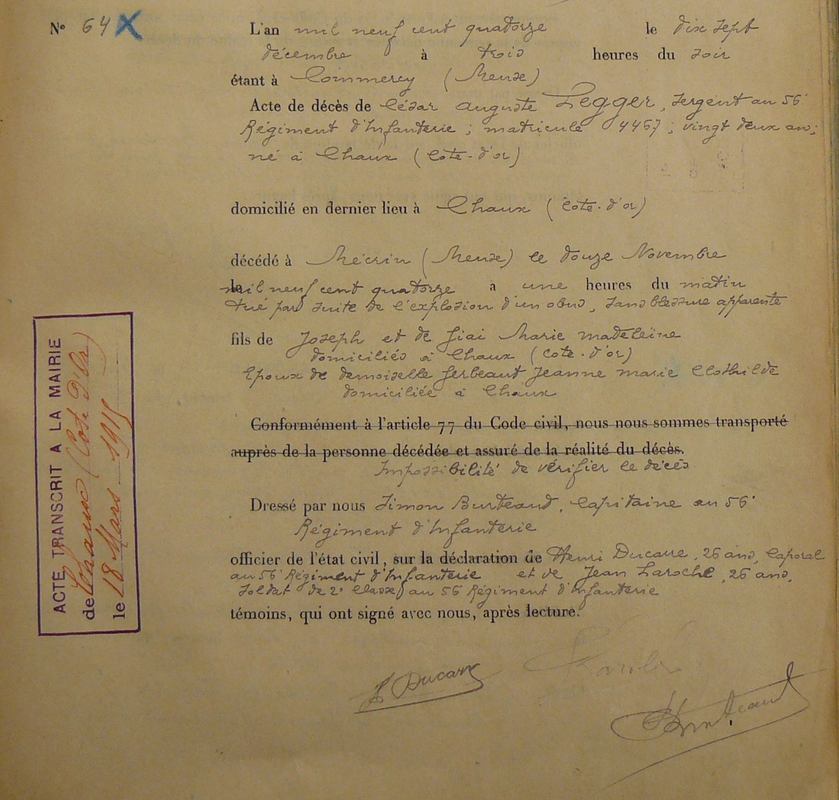 N° 64 X
L'an mil neuf cent quatorze le dix sept
décembre à trois heures du soir
étant à Commercy (Meuse)
Acte de décès de César Auguste Legger, Sergent au 56e
Régiment d'Infanterie ; matricule 4467 ; vingt deux ans ;
né à Chaux (Côte-d'or)
domicilié en dernier lieu à Chaux (Côte-d'or)
décédé à Mécrin (Meuse) le douze Novembre
mil neuf cent quatorze à une heures du matin
tué par suite de l'explosion d'un obus, sans blessure apparente
fils de Joseph et de Giai Marie Madeleine
domiciliés à Chaux (Côte-d'or)
Epoux de demoiselle Gerbeaut Jeanne Marie Clothilde
domiciliée à Chaux
Conformément à l'article 77 du Code civil, nous nous sommes transporté
auprès de la personne décédée et assuré de la réalité du décès.
Impossibilité de vérifier le décès
Dressé par nous Simon Burteaud, Capitaine au 56e
Régiment d'Infanterie
officier de l'état civil, sur la déclaration de Henri Ducarre, 26 ans, Caporal
au 56e Régiment d'Infanterie et de Jean Laroche, 26 ans,
Soldat de 2e Classe au 56 Régiment d'Infanterie
témoins, qui ont signé avec nous, après lecture.
H Ducarre
Burteaud
ACTE TRANSCRIT A LA MAIRIE
de Chaux (Côte d'Or)
le 18 Mars 1915